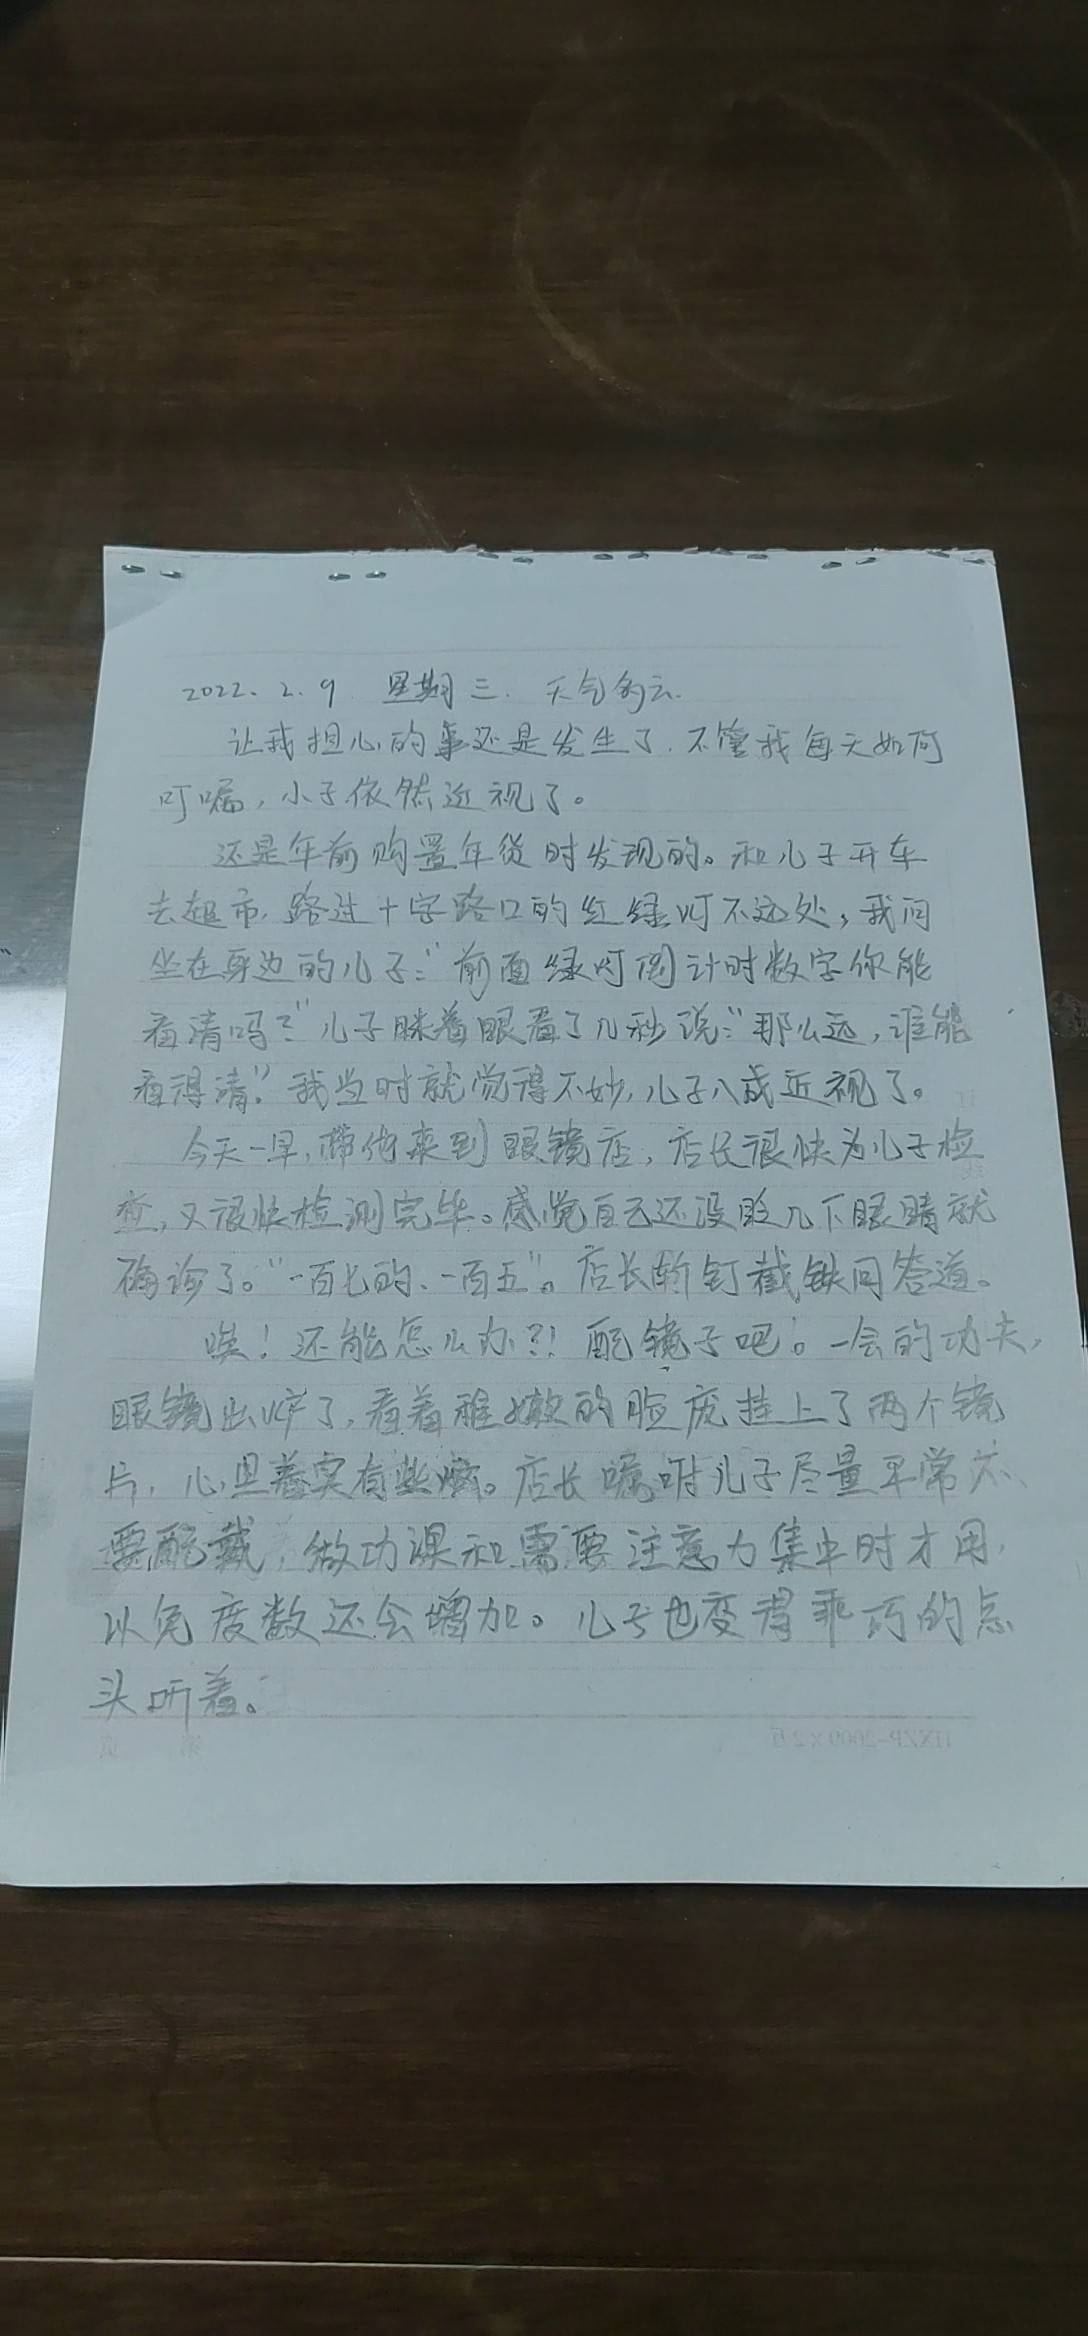 2022.2.9 星期三. 天气多云.
让我担心的事还是发生了.不管我每天如何
叮嘱,小子依然近视了。
还是年前购置年货时发现的。和儿子开车
去超市,路过十字路口的红绿灯不远处,我问
坐在身边的儿子:“前面绿灯倒计时数字你能
看清吗?”儿子眯着眼看了几秒说:“那么远,谁能
看得清”?我当时就觉得不妙,儿子八成近视了。
今天一早,带他来到眼镜店,店长很快为儿子检
查,又很快检测完毕。感觉自己还没眨几下眼睛就
确诊了。“一百七的、一百五”。店长斩钉截铁回答道。
唉!还能怎么办?!配镜子吧。一会的功夫,
眼镜出炉了,看着稚嫩的脸庞挂上了两个镜
片,心里着实有些痛。店长嘱咐儿子尽量平常不
要配戴,做功课和需要注意力集中时才用,
以免度数还会增加。儿子也变得乖巧的点
头听着。
HXZP-2000×2万
第 页